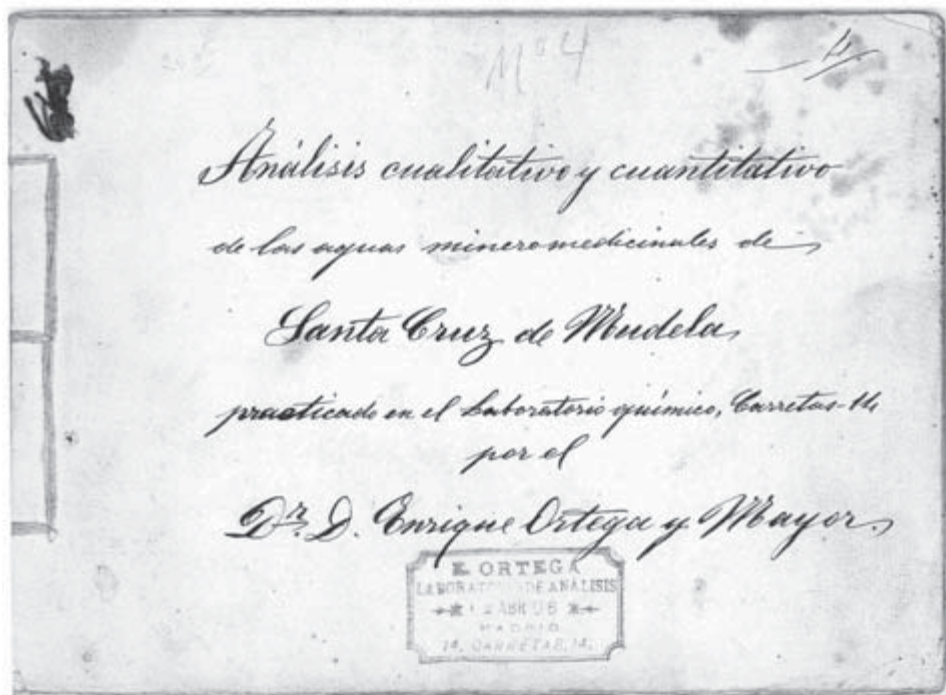 Nº 4
4
Análisis cualitativo y cuantitativo
de las aguas mineromedicinales de
Santa Cruz de Mudela,
practicado en el Laboratorio químico, Carretas-14,
por el
Dr. D. Enrique Ortega y Mayor.
E. ORTEGA
LABORATORIO DE ANALISIS
ABR 06
MADRID
14, CARRETAS, 14.